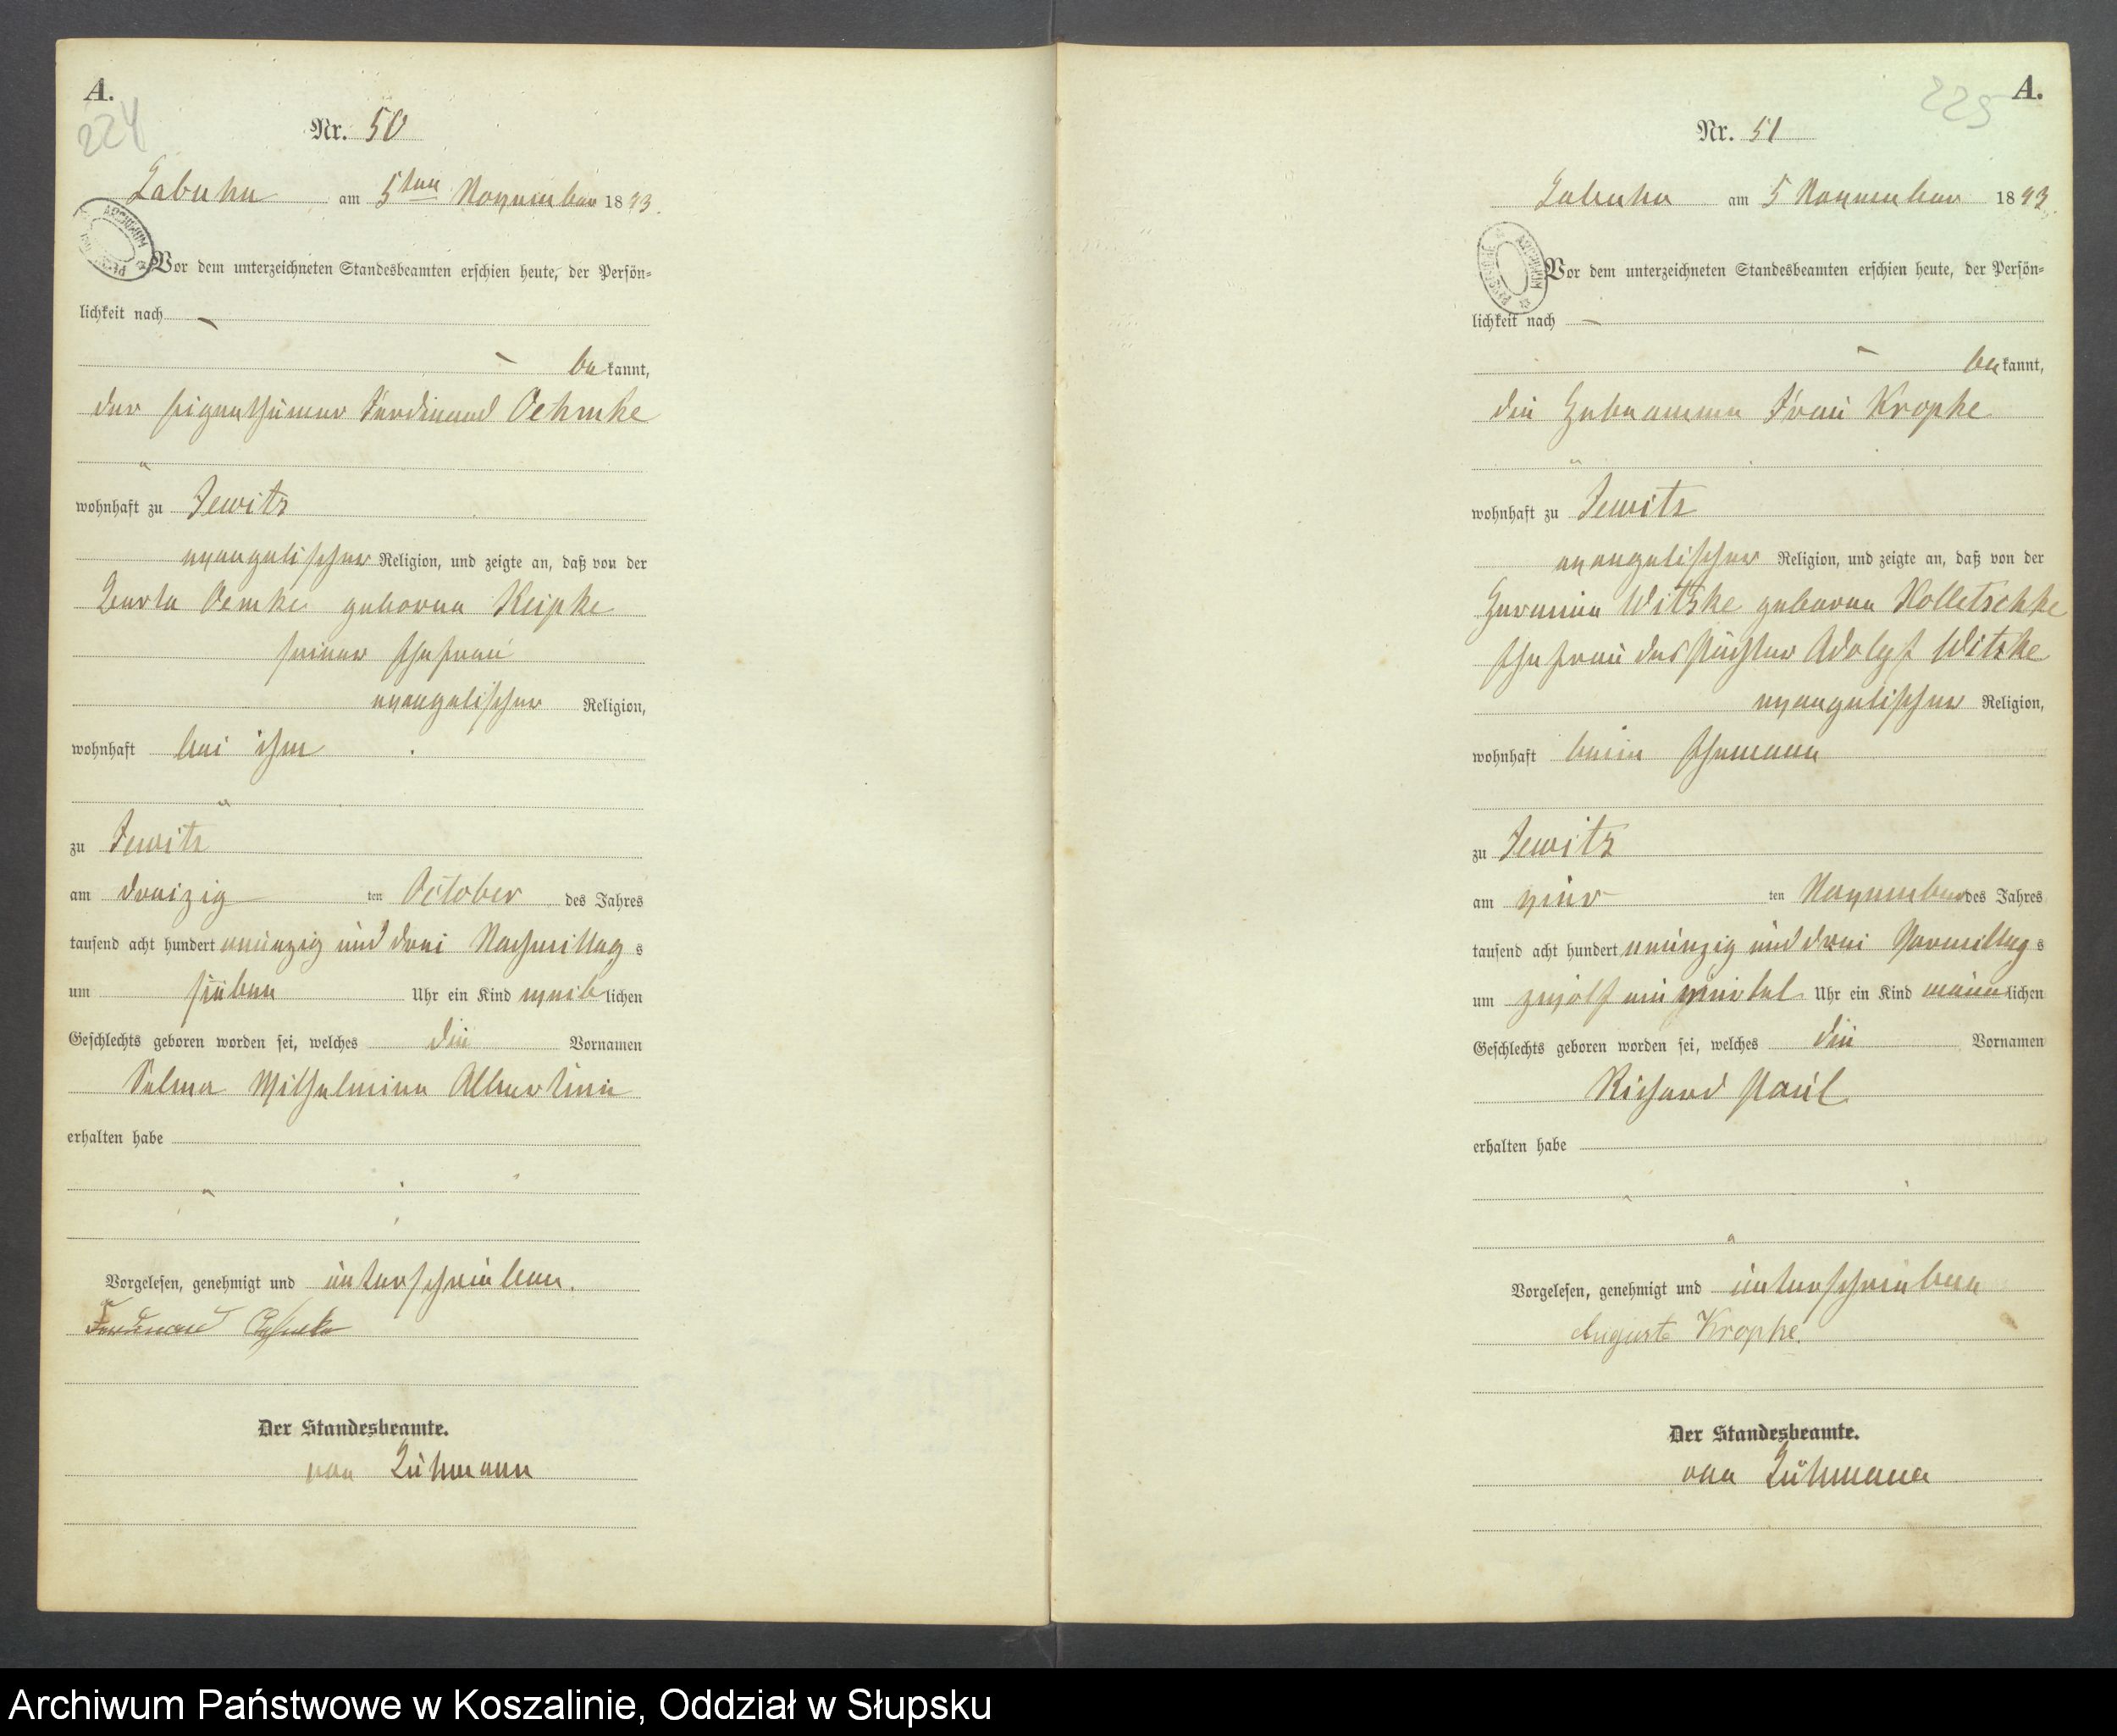 A.
224
Nr. 50
Labuhn am 5ten November 1893.
Vor dem unterzeichneten Standesbeamten erschien heute, der Persön=
lichkeit nach
be kannt,
der Eigenthümer Ferdinand Oehmke
wohnhaft zu Jewitz
evangelischer Religion, und zeigte an, daß von der
Berta Oemke geborne Reipke
seiner Ehefrau
evangelischer Religion,
wohnhaft bei ihm
zu Jewitz
am dreizig ten October des Jahres
tausend acht hundert neunzig und drei Nachmittag s
um sieben Uhr ein Kind weib lichen
Geschlechts geboren worden sei, welches die Vornamen
Selma Wilhelmine Albertine
erhalten habe
Vorgelesen, genehmigt und unterschrieben.
Ferdinand Oehmke
Der Standesbeamte.
von Lühmann
A.
225
Nr. 51
Labuhn am 5 November 1893.
Vor dem unterzeichneten Standesbeamten erschien heute, der Persön=
lichkeit nach
be kannt,
die Hebeamme Frau Kropke
wohnhaft zu Jewitz
evangelischer Religion, und zeigte an, daß von der
Hermine Witzke geborne Kolletschke
Ehefrau des Pächter Adolf Witzke
evangelischer Religion,
wohnhaft beim Ehemann
zu Jewitz
am vier ten November des Jahres
tausend acht hundert neunzig und drei Vormittag s
um zwölf ein viertel Uhr ein Kind männ lichen
Geschlechts geboren worden sei, welches die Vornamen
Richard Paul
erhalten habe
Vorgelesen, genehmigt und unterschrieben
Auguste Kropke.
Der Standesbeamte.
von Lühmann
Archiwum Państwowe w Koszalinie, Oddział w Słupsku